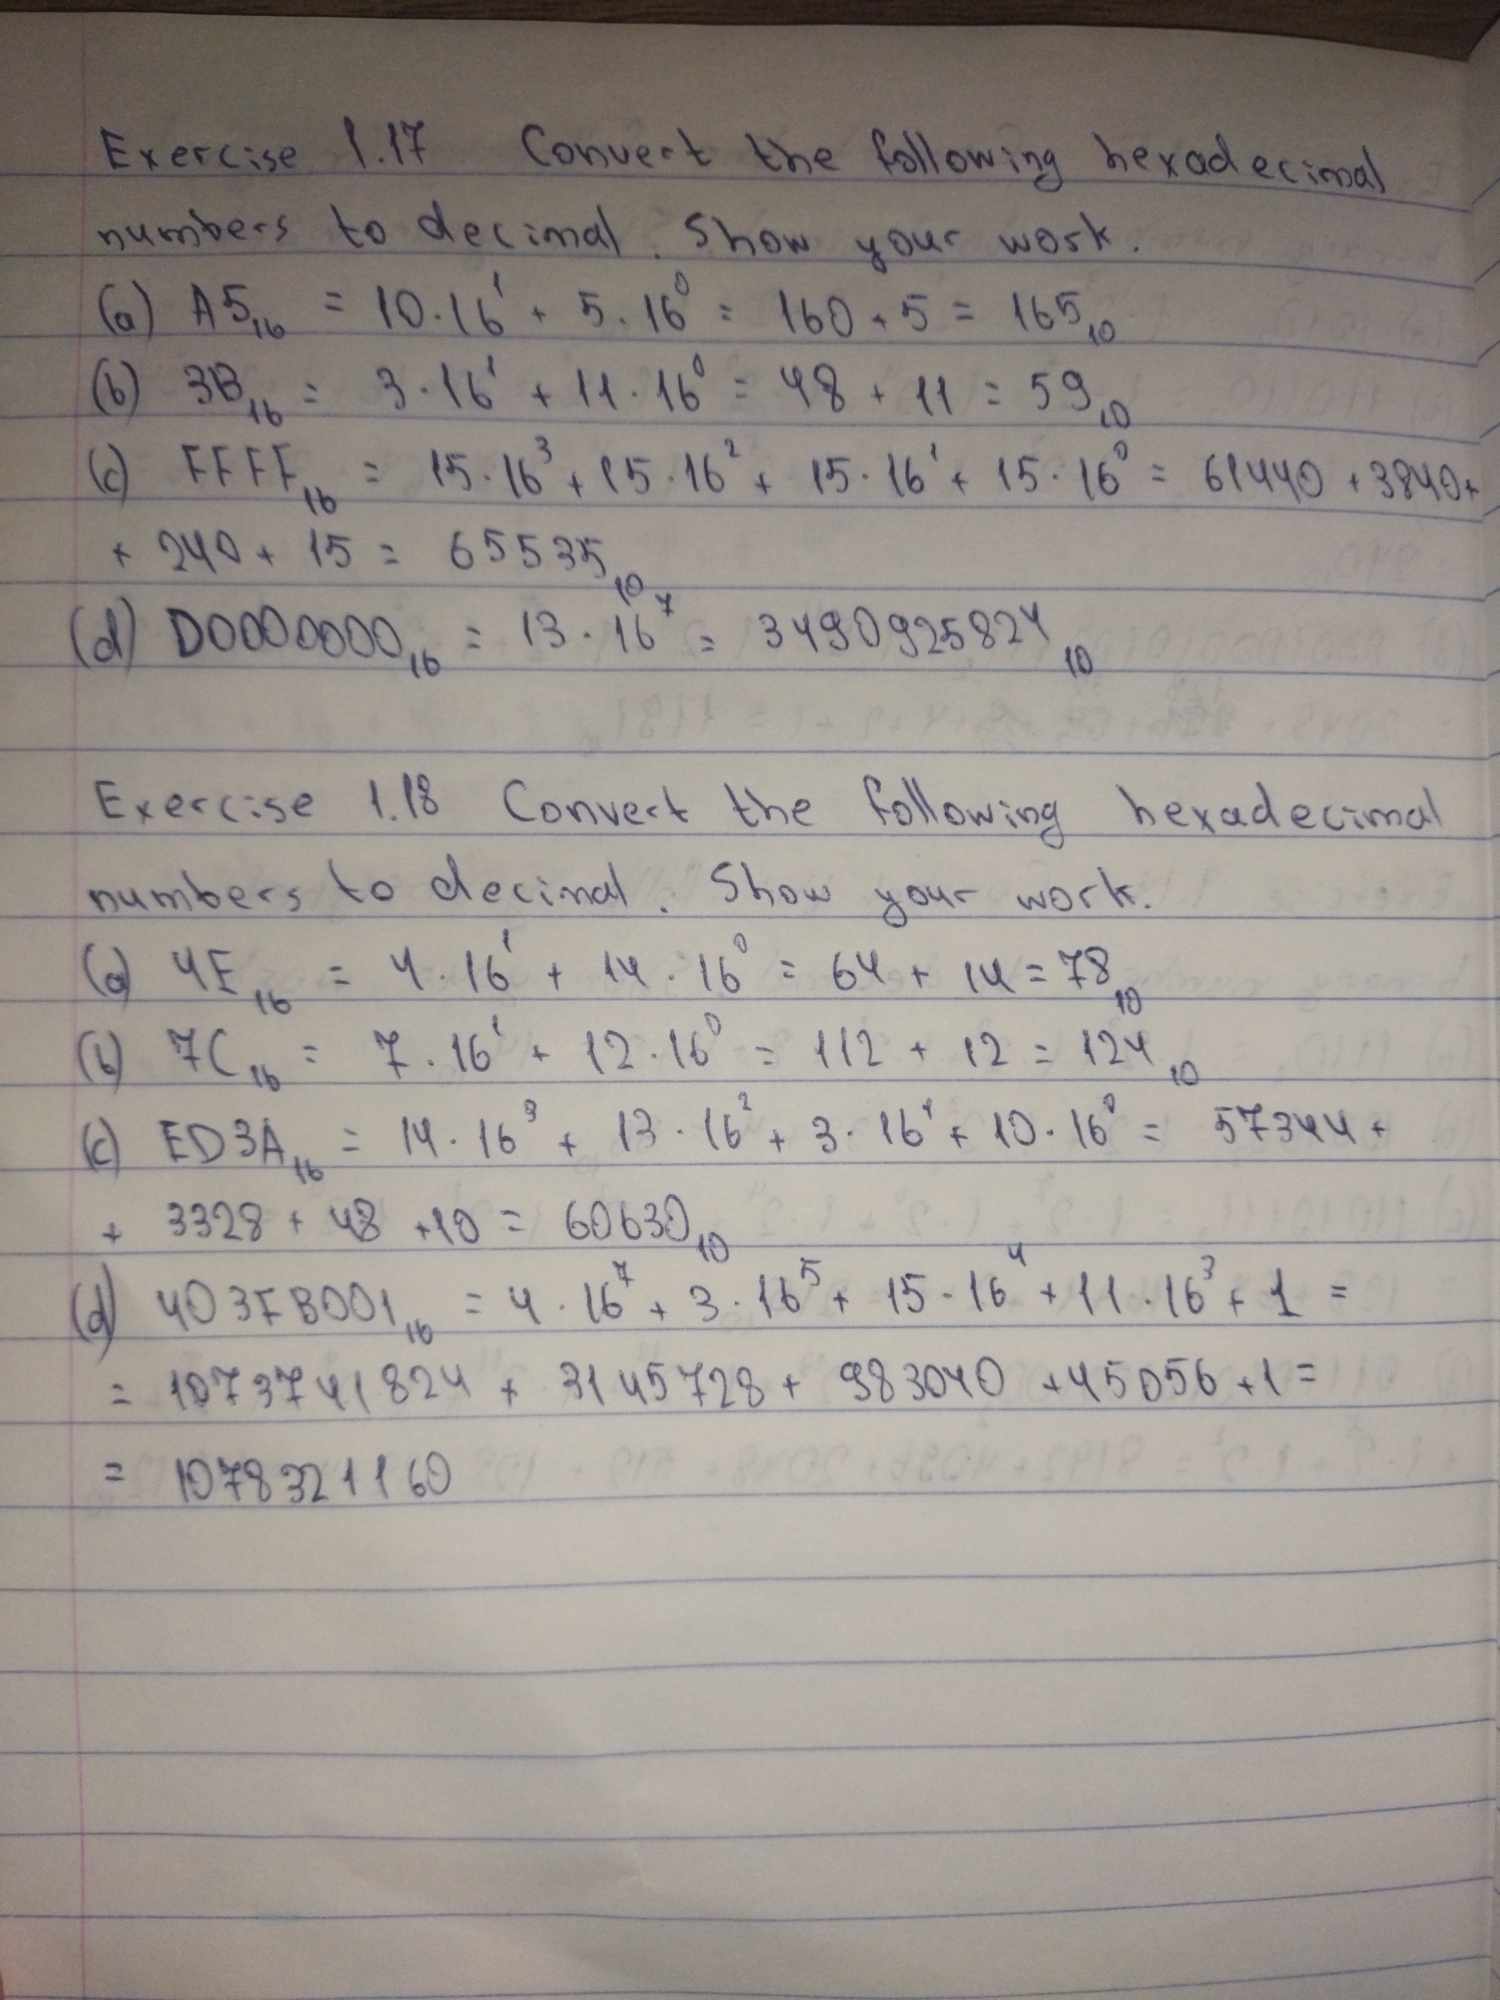 Exercise 1.17 Convert the following hexadecimal
numbers to decimal. Show your work.
(a) A5₁₆ = 10·16¹ + 5·16⁰ = 160 + 5 = 165₁₀
(b) 3B₁₆ = 3·16¹ + 11·16⁰ = 48 + 11 = 59₁₀
(c) FFFF₁₆ = 15·16³ + 15·16² + 15·16¹ + 15·16⁰ = 61440 + 3840 +
+ 240 + 15 = 65535₁₀
(d) D0000000₁₆ = 13·16⁷ = 3490925824₁₀
Exercise 1.18 Convert the following hexadecimal
numbers to decimal. Show your work.
(a) 4E₁₆ = 4·16¹ + 14·16⁰ = 64 + 14 = 78₁₀
(b) 7C₁₆ = 7·16¹ + 12·16⁰ = 112 + 12 = 124₁₀
(c) ED3A₁₆ = 14·16³ + 13·16² + 3·16¹ + 10·16⁰ = 57344 +
+ 3328 + 48 + 10 = 60630₁₀
(d) 403FB001₁₆ = 4·16⁷ + 3·16⁵ + 15·16⁴ + 11·16³ + 1 =
= 1073741824 + 3145728 + 983040 + 45056 + 1 =
= 1078321160